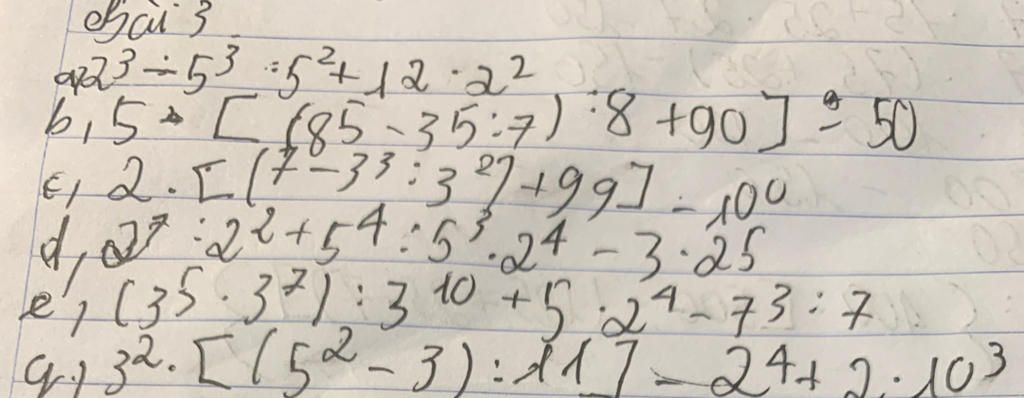 Bài 3
a, 2³ - 5³ : 5² + 12 . 2²
b, 5 . [ (85 - 35 : 7) : 8 + 90 ] - 50
c, 2 . [ (7 - 3³ : 3²) + 99 ] - 100
d, 2⁷ : 2² + 5⁴ : 5³ . 2⁴ - 3 . 25
e, (3⁵ . 3⁷) : 3¹⁰ + 5 . 2⁴ - 7³ : 7
g, 3² . [ (5² - 3) : 11 ] - 2⁴ + 2 . 10³